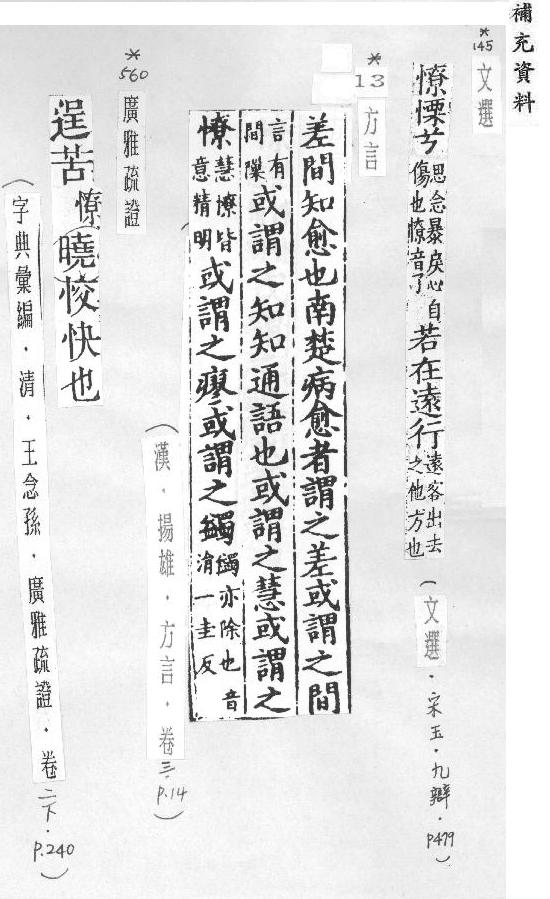 補充資料
*145 文選
憭慄兮思念暴戾心自傷也憭音了若在遠行遠客出去之他方也(文選．宋玉．九辯．p479)
*13 方言
差間知愈也南楚病愈者謂之差或謂之間
言有間隟或謂之知知通語也或謂之慧或謂之
憭慧憭皆意精明或謂之瘳或謂之蠲蠲亦除也音涓一圭反
(漢．揚雄．方言．卷三．p.14)
*560 廣雅疏證
逞苦憭曉恔快也
(字典彙編．清．王念孫．廣雅疏證．卷二下．p.240)